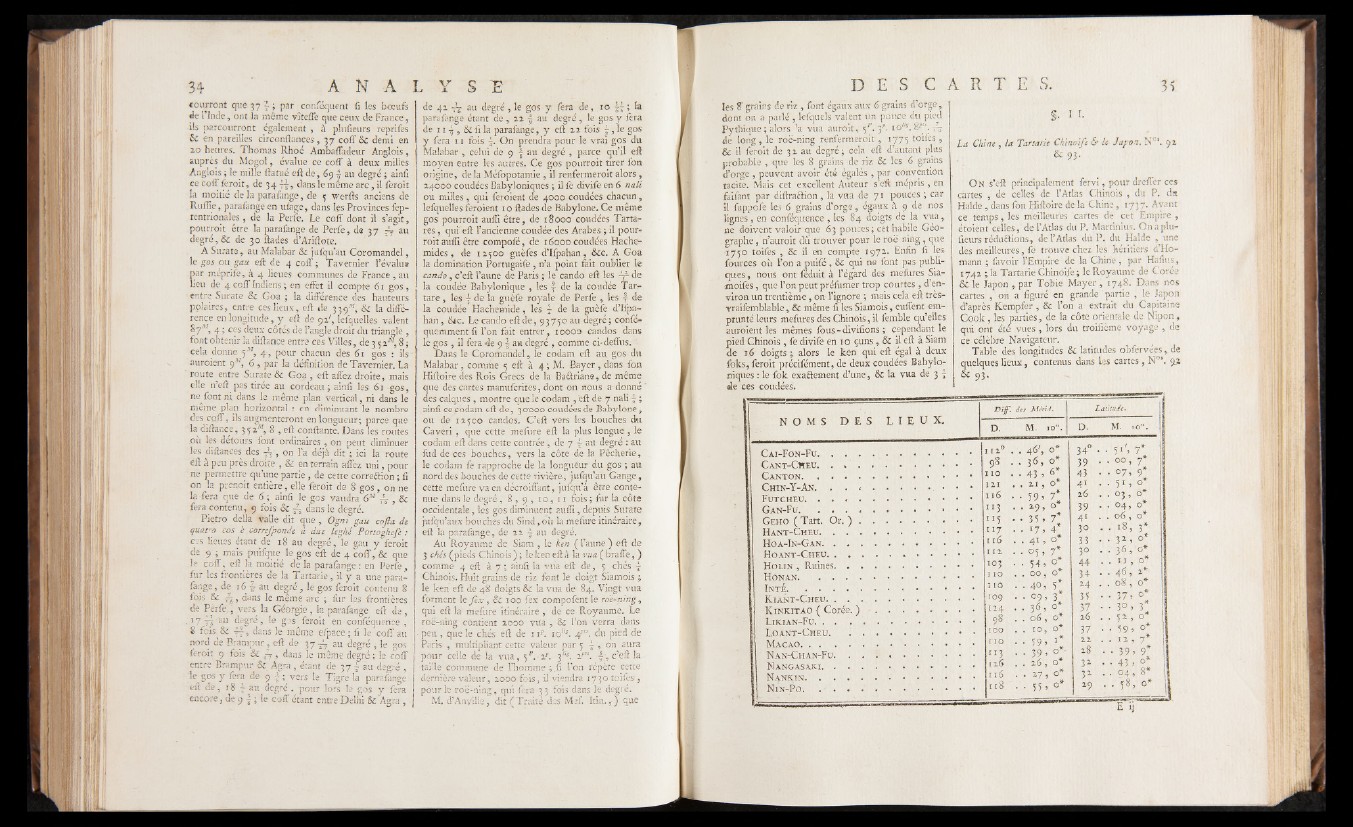 34 ANALYSE
courront que 37 ; par conséquent si les bœufs
de l'Inde, ont la même vitesse que ceux de France,
ils parcourront également, à plusieurs reprises
& en pareilles circonstances, 37 coss & demi en
20 heures. Thomas Rhoé Ambassadeur Anglois,
auprès du Mogol, évalue ce coss à deux milles
Anglois; le mille statué est de, 69 au degré; ainsi
ce coss feroit, de 34 , dans le même arc, il seroit
la moitié de la parasange, de 5 wersts anciens de
Russie, parasange en usage, dans les Provinces sep-
tentrionales, de la Perse. Le coss dont il s'agit,
pourroit être la parasange de Perse, de 37 au
degré, & de 30 stades d'Aristote.
A Surate, au Malabar & jusqu'au Coromandel,
le gos ou gau est de 4 coss; Tavernier l'évalue
par méprise, à 4 lieues communes de France, au
lieu de 4 coss Indiens; en effet il compte 61 gos,
entre Surate & Goa; la différence des hauteurs
polaires, entre ces lieux, est de 339, & la diffé-
rence en longitude, y est de 92', lesquelles valent
87, 4; ces deux côtés de l'angle droit du triangle,
font obtenir la distance entre ces Villes, de 352, 8;
cela donne 5, 4, pour chacun des 61 gos: ils
auroient 9, 6, par la définition de Tavernier. La
route entre Surate & Goa, est assez droite, mais
elle n'est pas tirée au cordeau; ainsi les 61 gos,
ne sont ni dans le même plan vertical, ni dans le
même plan horizontal: en diminuant le nombre
des coss, ils augmenteront en longueur; parce que
la distance, 352, 8, est constante. Dans les routes
où les détours sont ordinaires, on peut diminuer
les distances des , on l'a déjà dit; ici la route
est à peu près droite, & en terrain assez uni, pour
ne permettre qu'une partie, de cette correction; si
on la prenoit entière, elle feroit de 8 gos, on ne
la fera que de 6; ainsi le gos vaudra 6 , &
sera contenu, 9 fois & dans le degré.
Pietro della valle dit que, Ogni gau costa de
quatro cos è corresponde à due leghe Portoghese:
ces lieues étant de 18 au degré, le gau y seroit
de 9; mais puisque le gos est de 4 coss, & que
le coss, est la moitié de la parasange: en Perse,
sur les frontières de la Tartarie, il y a une para-
sange, de 16 au degré, le gos seroit contenu 8
fois & , dans le même arc; sur les frontières
de Perse, vers la Géorgie, la parasange est de,
17 au degré, le gos seroit en conséquence,
8 fois & , dans le même espace; si le coss au
nord de Brampur, est de 37 au degré, le gos
seroit 9 fois & , dans le même degré: le coss
entre Brampur & Agra, étant de 37 au degré,
le gos y sera de 9 ; vers le Tigre la parasange
est de, 18 au degré, pour lors le gos y sera
encore, de 9 ; le coss étant entre Delhi & Agra,
de 42 au degré, le gos y sera de, 10 ; la
parasange étant de, 22 au degré, le gos y sera
de 11 , & si la parasange, y est 22 fois , le gos
y sera 11 fois . On prendra pour le vrai gos du
Malabar, celui de 9 au degré, parce qu'il est
moyen entre les autres. Ce gos pourroit tirer son
origine, de la Mésopotamie, il renfermeroit alors,
24000 coudées Babyloniques; il se divise en 6 nali
ou milles, qui seroient de 4000 coudées chacun,
lesquelles seroient 10 stades de Babylone. Ce même
gos pourroit aussi être, de 18000 coudées Tarta-
res, qui est l'ancienne coudée des Arabes; il pour-
roit aussi être composé, de 16000 coudées Hache-
mides, de 12500 guèses d'Ispahan, &c. A Goa
la domination Portugaise, n'a point fait oublier le
cando, c'est l'aune de Paris; le cando est les de
la coudée Babylonique, les de la coudée Tar-
tare, les de la guèse royale de Perse, les de
la coudée Hachemide, les de la guèse d'Ispa-
han, &c. Le cando est de, 93750 au degré; consé-
quemment si l'on fait entrer, 10000 candos dans
le gos, il sera de 9 au degré, comme ci-dessus.
Dans le Coromandel, le codam est au gos du
Malabar, comme 5 est à 4; M. Bayer, dans son
Histoire des Rois Grecs de la Bactriane, de même
que des cartes manuscrites, dont on nous a donné
des calques, montre que le codam, est de 7 nali ;
ainsi ce codam est de, 30000 coudées de Babylone,
ou de 12500 candos. C'est vers les bouches du
Caveri, que cette mesure est la plus longue, le
codam est dans cette contrée, de 7 au degré: au
sud de ces bouches, vers la côte de la Pêcherie,
le codam se rapproche de la longueur du gos; au
nord des bouches de cette rivière, jusqu'au Gange,
cette mesure va en décroissant, jusqu'à être conte-
nue dans le degré, 8, 9, 10, 11 fois; sur la côte
occidentale, les gos diminuent aussi, depuis Surate
jusqu'aux bouches du Sind, où la mesure itinéraire,
est la parasange, de 22 au degré.
Au Royaume de Siam, le ken (l'aune) est de
3 chés (pieds Chinois); le ken est à la vua (brasse,)
comme 4 est à 7; ainsi la vua est de, 5 chés
Chinois. Huit grains de riz font le doigt Siamois;
le ken est de 48 doigts & la vua de 84. Vingt vua
forment le sex, & 100 sex composent le roé-ning,
qui est la mesure itinéraire, de ce Royaume. Le
roé-ning contient 2000 vua, & l'on verra dans
peu, que le chés est de 11. 10. 4. du pied de
Paris, multipliant cette valeur par 5 , on aura
pour celle de la vua, 5. 2. 3. 2. , c'est la
taille commune de l'homme; si l'on répète cette
dernière valeur, 2000 fois, il viendra 1730 toises,
pour le roé-ning, qui sera 33 fois dans le degré.
M. d'Anville, dit (Traité des Mes. Itin.,) que
DES CARTES. 35
les 8 grains de riz, sont égaux aux 6 grains d'orge,
dont on a parlé, lesquels valent un pouce du pied
Pythique; alors la vua auroit, 5. 3. 10. 8.
de long, le roé-ning renfermeroit, 1775 toises,
& il seroit de 32 au degré; cela est d'autant plus
probable, que les 8 grains de riz & les 6 grains
d'orge, peuvent avoir été égalés, par convention
tacite. Mais cet excellent Auteur s'est mépris, en
faisant par distraction, la vua de 71 pouces; car
il suppose les 6 grains d'orge, égaux à 9 de nos
lignes, en conséquence, les 84 doigts de la vua,
ne doivent valoir que 63 pouces; cet habile Géo-
graphe, n'auroit dû trouver pour le roé-ning, que
1750 toises, & il en compte 1972. Enfin si les
sources où l'on a puisé, & qui ne sont pas publi-
ques, nous ont séduit à l'égard des mesures Sia-
moises, que l'on peut présumer trop courtes, d'en-
viron un trentième, on l'ignore; mais cela est très-
vraisemblable, & même si les Siamois, eussent em-
prunté leurs mesures des Chinois, il semble qu'elles
auroient les mêmes sous-divisions; cependant le
pied Chinois, se divise en 10 çuns, & il est à Siam
de 16 doigts; alors le ken qui est égal à deux
foks, seroit précisément, de deux coudées Babylo-
niques: le fok exactement d'une, & la vua de 3
de ces coudées.
§. II.
La Chine, la Tartarie Chinoise & le Japon. Nos. 92
& 93.
ON s'est principalement servi, pour dresser ces
cartes, de celles de l'Atlas Chinois, du P. du
Halde, dans son Histoire de la Chine, 1737. Avant
ce temps, les meilleures cartes de cet Empire,
étoient celles, de l'Atlas du P. Martinius. On a plu-
sieurs réductions, de l'Atlas du P. du Halde, une
des meilleures, se trouve chez les héritiers d'Ho-
mann; savoir l'Empire de la Chine, par Hasius,
1742; la Tartarie Chinoise; le Royaume de Corée
& le Japon, par Tobie Mayer, 1748. Dans nos
cartes, on a figuré en grande partie, le Japon
d'après Kempfer, & l'on a extrait du Capitaine
Cook, les parties, de la côte orientale de Nipon,
qui ont été vues, lors du troisième voyage, de
ce célèbre Navigateur.
Table des longitudes & latitudes observées, de
quelques lieux, contenus dans les cartes, Nos. 92
& 93.
NOMS DES LIEUX. Diff. des Mérid. Latitude.
D. M. 10". D. M. 10".
CAI-FON-FU. 112° 46', 0* 34° 51', 7*
CANT-CHEU. 98 36, 0* 39 00, 7*
CANTON. 110 43, 6* 43 07, 9*
CHIN-Y-AN. 121 21, 0* 41 51, 0*
FUTCHEU. 116 59, 7* 26 03, 0*
GAN-FU. 113 29, 0* 39 04, 0*
GEHO (Tart. Or.) 115 35, 7* 41 06, 0*
HANT-CHEU. 117 17, 4* 30 18, 3*
HOA-IN-GAN. 116 41, 0* 33 32, 0*
HOANT-CHEU. 112 05, 7* 30 36, 0*
HOLIN, Ruines. 103 54, 0* 44 13, 0*
HONAN. 110 00, 0* 34 46, 2*
INTÉ. 110 40, 5* 24 08, 0*
KIANT-CHEU. 109 09, 3* 35 37, 0*
KINKITAO (Corée.) 124 36, 0* 37 30, 3*
LIKIAN-FU. 98 06, 0* 26 52, 0*
LOANT-CHEU. 100 10, 0* 37 59, 0*
MACAO. 110 59, 1* 22 12, 7*
NAN-CHAN-FU. 113 39, 0* 28 39, 9*
NANGASAKI. 126 26, 0* 32 43, 0*
NANKIN. 116 27, 0* 32 04, 8*
NIN-PO. 118 55, 0* 29 58, 0*
E ij